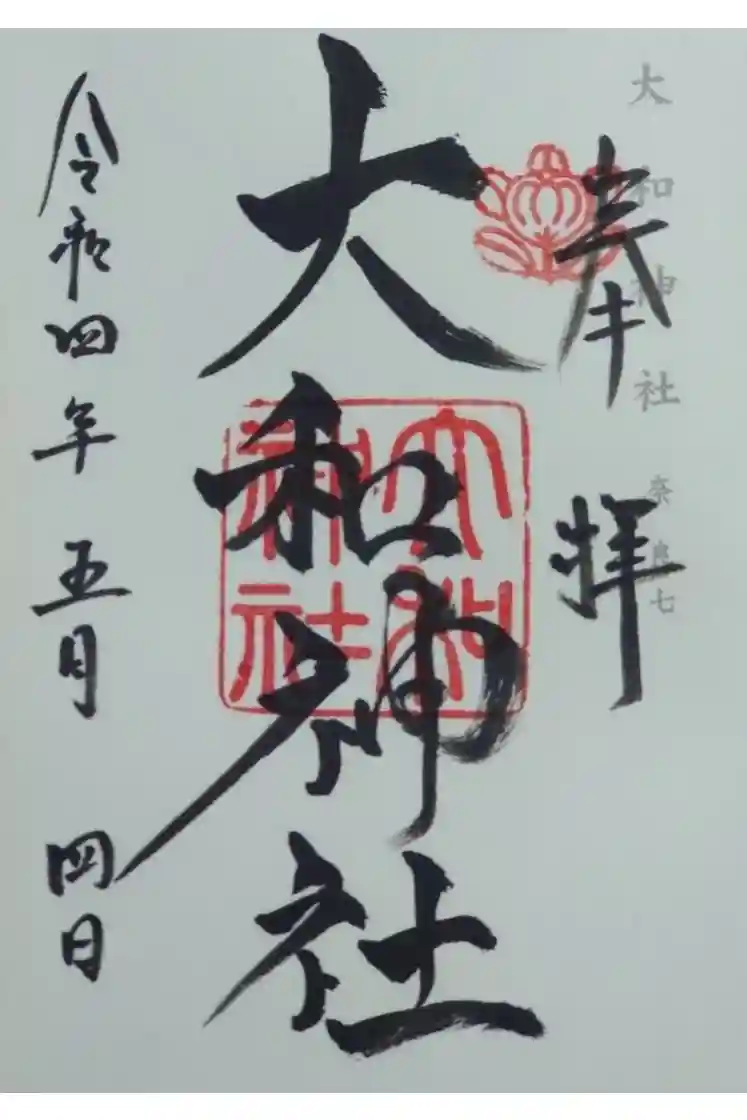 大和神社 奈良七
奉拝
大和神社
大和神社
令和四年五月四日